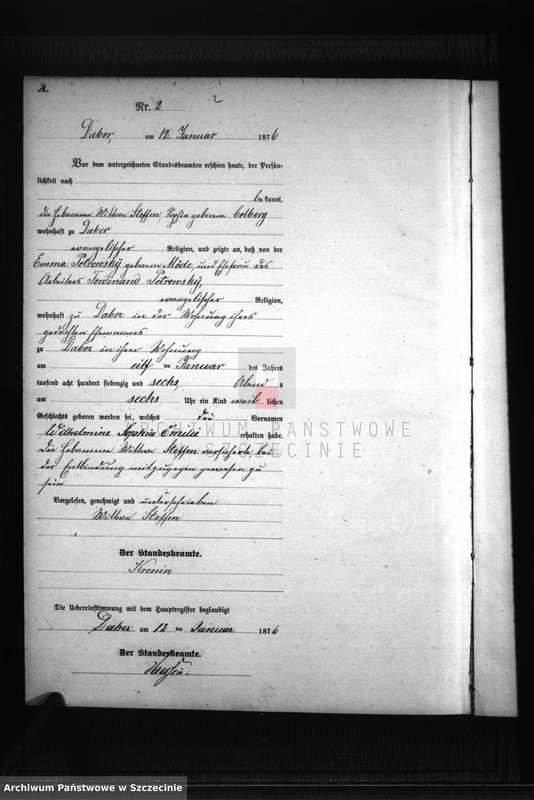 A.
Nr. 2
Daber, am 12. Januar 1876
Vor dem unterzeichneten Standesbeamten erschien heute, der Persön-
lichkeit nach
bekannt,
die Hebamme Wittwe Steffen Sophie geborene Colberg
wohnhaft zu Daber
evangelischer Religion, und zeigte an, daß von der
Emma Petrowsky geborene Möde, und Ehefrau des
Arbeiters Ferdinand Petrowsky,
evangelischer Religion,
wohnhaft zu Daber in der Wohnung ihres
gedachten Ehemannes
zu Daber in ihrer Wohnung
am eilf ten Januar des Jahres
tausend acht hundert siebenzig und sechs, Abend s
um sechs Uhr ein Kind weib lichen
Geschlechts geboren worden sei, welches die Vornamen
Wilhelmine Sophie Emilie erhalten habe.
Die Hebamme Wittwe Steffen versicherte bei
der Entbindung mit zugegen gewesen zu
sein
Vorgelesen, genehmigt und unterschrieben
Wittwe Steffen
Der Standesbeamte.
Die Uebereinstimmung mit dem Hauptregister beglaubigt
Daber am 12 ten Januar 1876
Der Standesbeamte.
ARCHIWUM PAŃSTWOWE
W SZCZECINIE
Archiwum Państwowe w Szczecinie